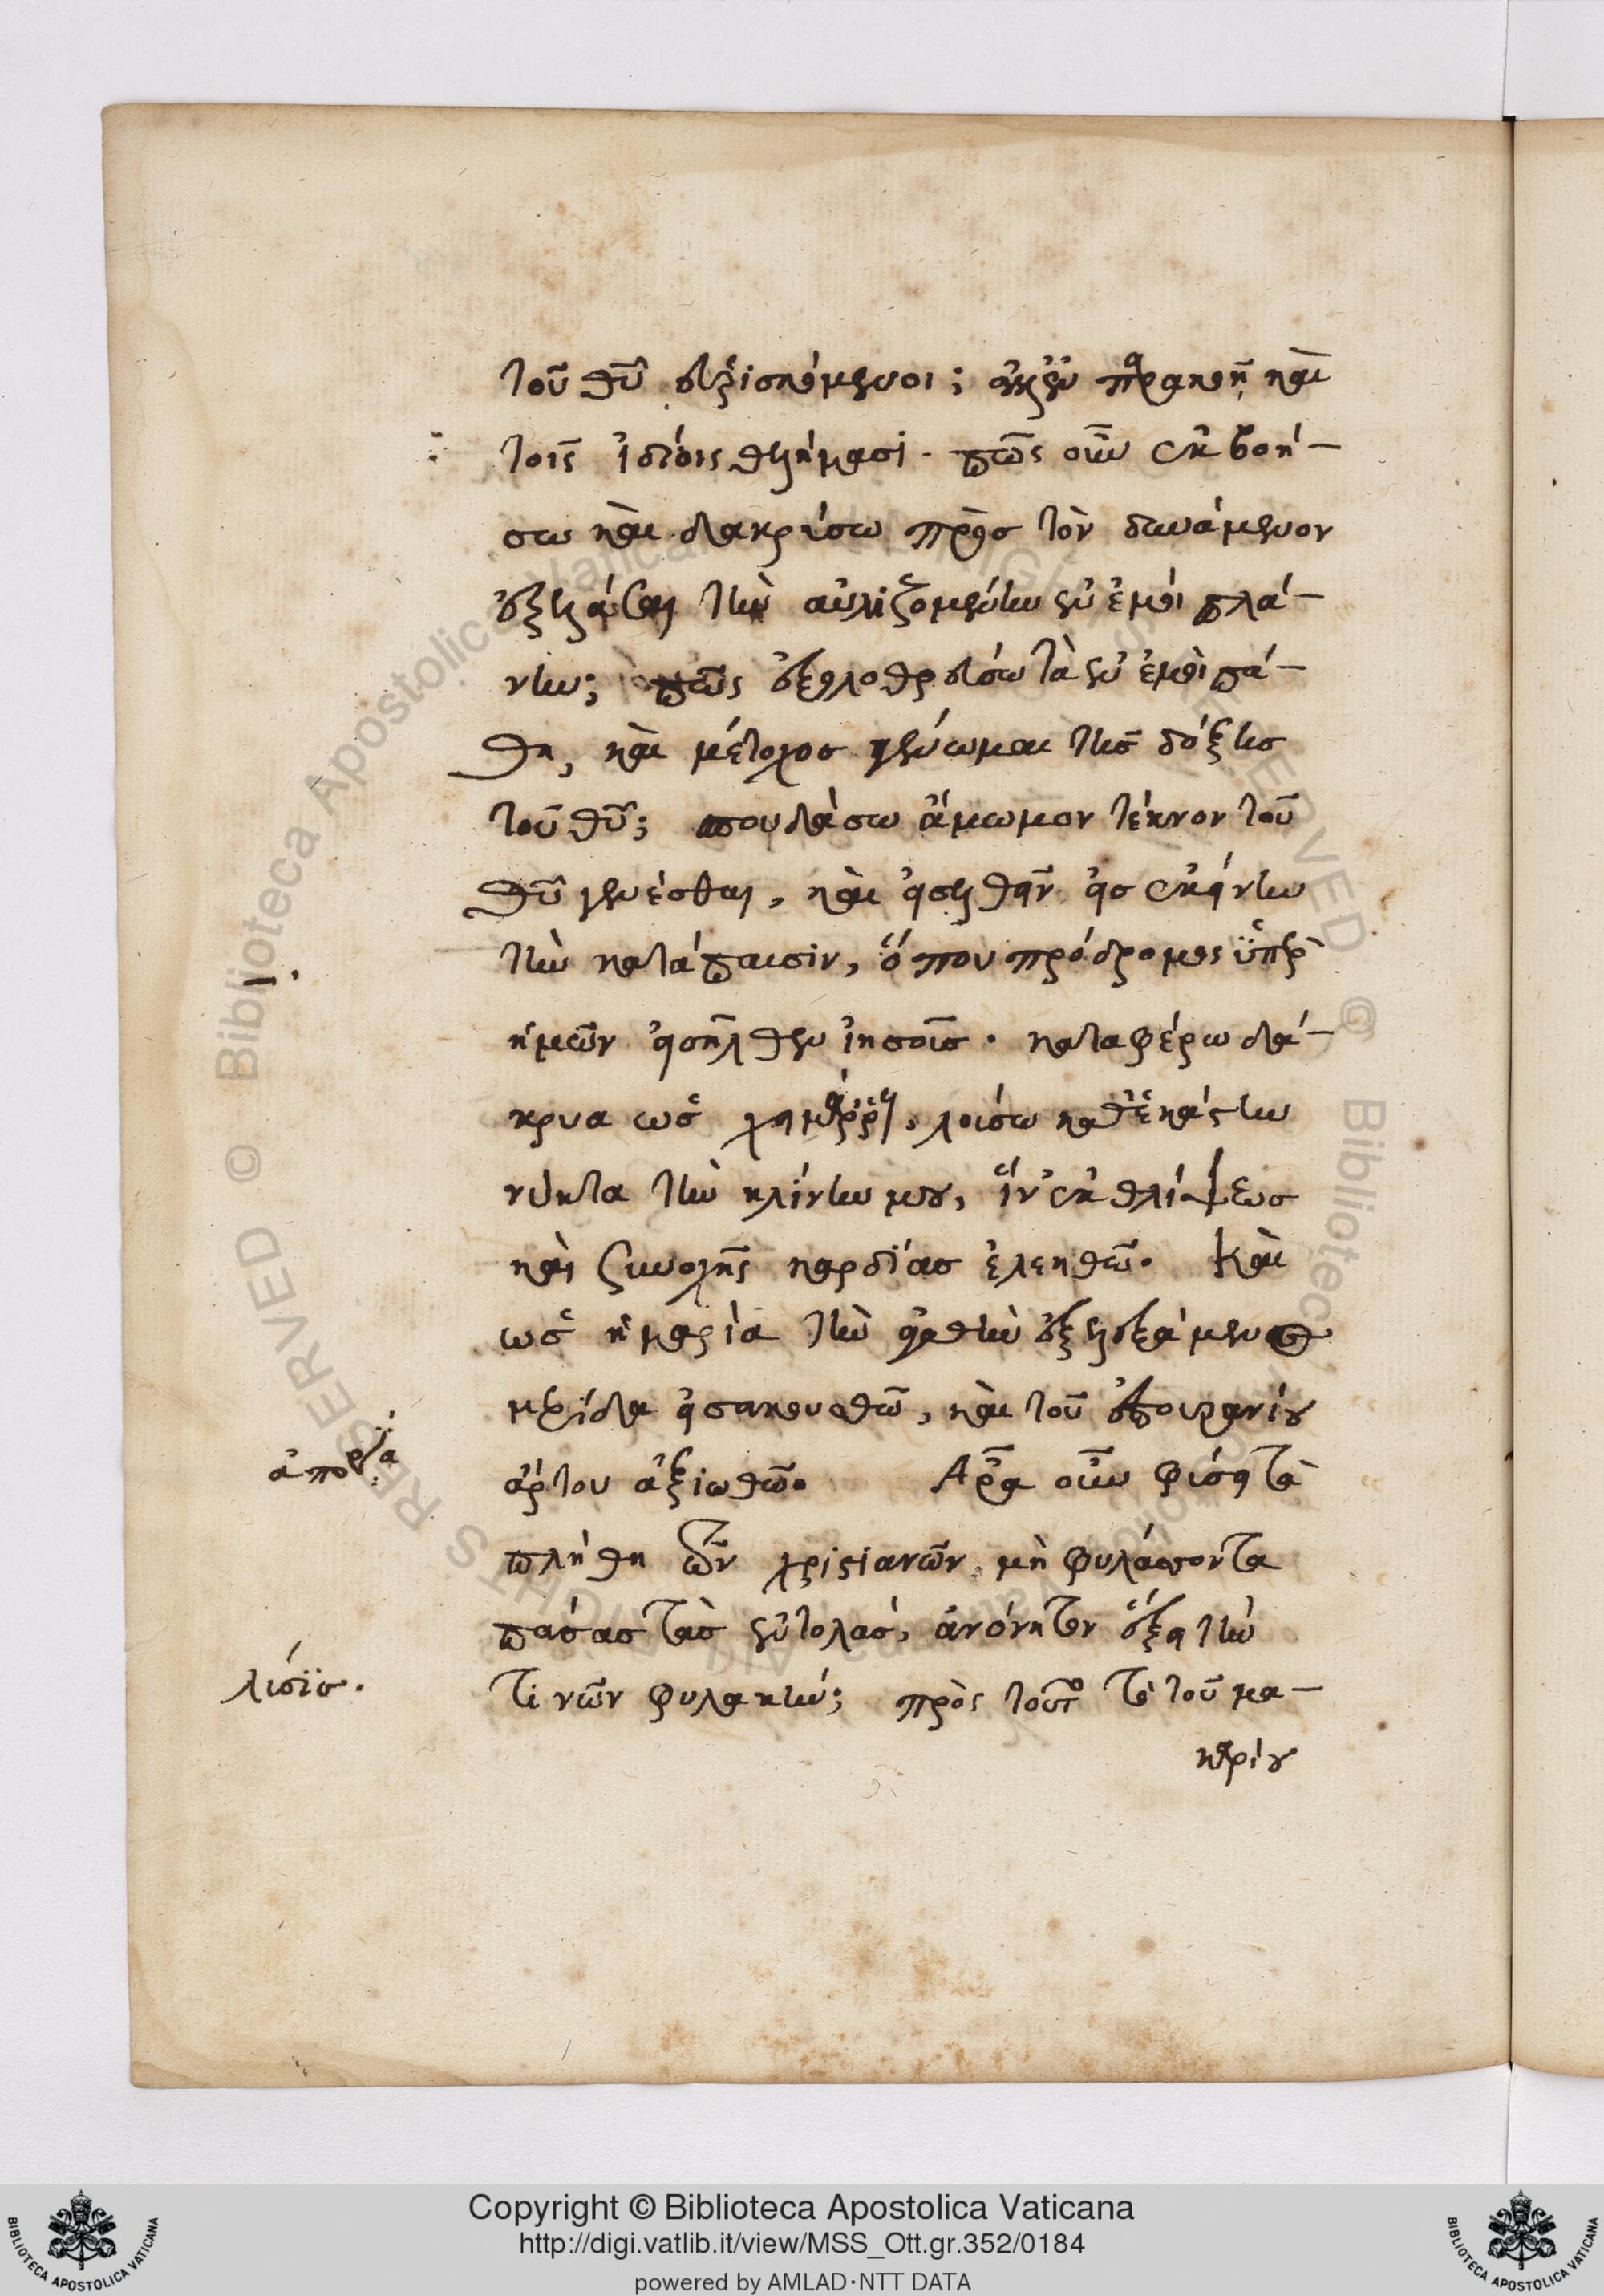 τοῦ θῦ εὑρισκόμενοι; οὐκ ἐν παρακοῇ καὶ
τοῖς ἰδίοις θελήμασι. πῶς οὖν ἐκβοή-
σω καὶ δακρύσω πρὸσ τὸν δυνάμενον
ἐξελάσαι τὴν αὐλιζομένην ἐν ἐμοὶ πλά-
νην; πῶς ἐξολοθρεύσω τὰ ἐν ἐμοὶ πά-
θη, καὶ μέτοχοσ γένωμαι τῆσ δόξησ
τοῦ θῦ; σπουδάσω ἄμωμον τέκνον τοῦ
θῦ γενέσθαι, καὶ εἰσελθεῖν εἰσ ἐκείνην
τὴν κατάπαυσιν, ὅπου πρόδρομος ὑπὲρ
ἡμῶν εἰσῆλθεν ἰησοῦσ. καταφέρω δά-
κρυα ὡσ χειμάρρει, λούσω καθ' ἑκάστην
νύκτα τὴν κλίνην μου, ἵν' ἐκ θλίψεωσ
καὶ συνοχῆς καρδίασ ἐλεηθῶ. Καὶ
ὡσ ἡ μαρία τὴν ἀγαθὴν ἐξελεξάμενοσ
μερίδα εἰσακουσθῶ, καὶ τοῦ ἐπουρανίου
ἄρτου ἀξιωθῶ. Ἆρα οὖν φύσει τὰ
ἀπορία
πλήθη τῶν χριστιανῶν, μὴ φυλάττοντα
πάσασ τὰσ ἐντολάσ, ἀνόνητον ἕξει τὴν
τινῶν φυλακήν; πρὸς τοῦτο τὸ τοῦ μα-
λύσισ.
καρίου
Copyright © Biblioteca Apostolica Vaticana
http://digi.vatlib.it/view/MSS_Ott.gr.352/0184
powered by AMLAD·NTT DATA
BIBLIOTECA APOSTOLICA VATICANA
BIBLIOTECA APOSTOLICA VATICANA